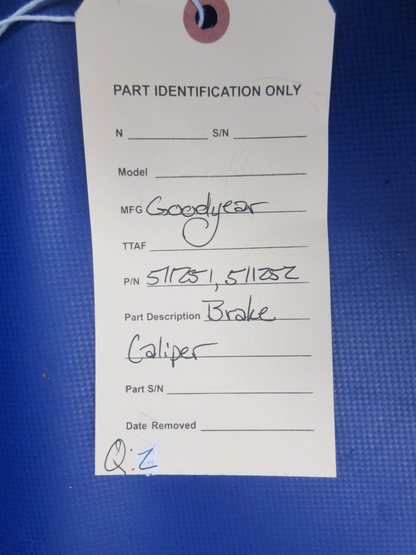 PART IDENTIFICATION ONLY
N S/N
Model
MFG Goodyear
TTAF
P/N 511251, 511252
Part Description Brake
Caliper
Part S/N
Date Removed
Q: 2